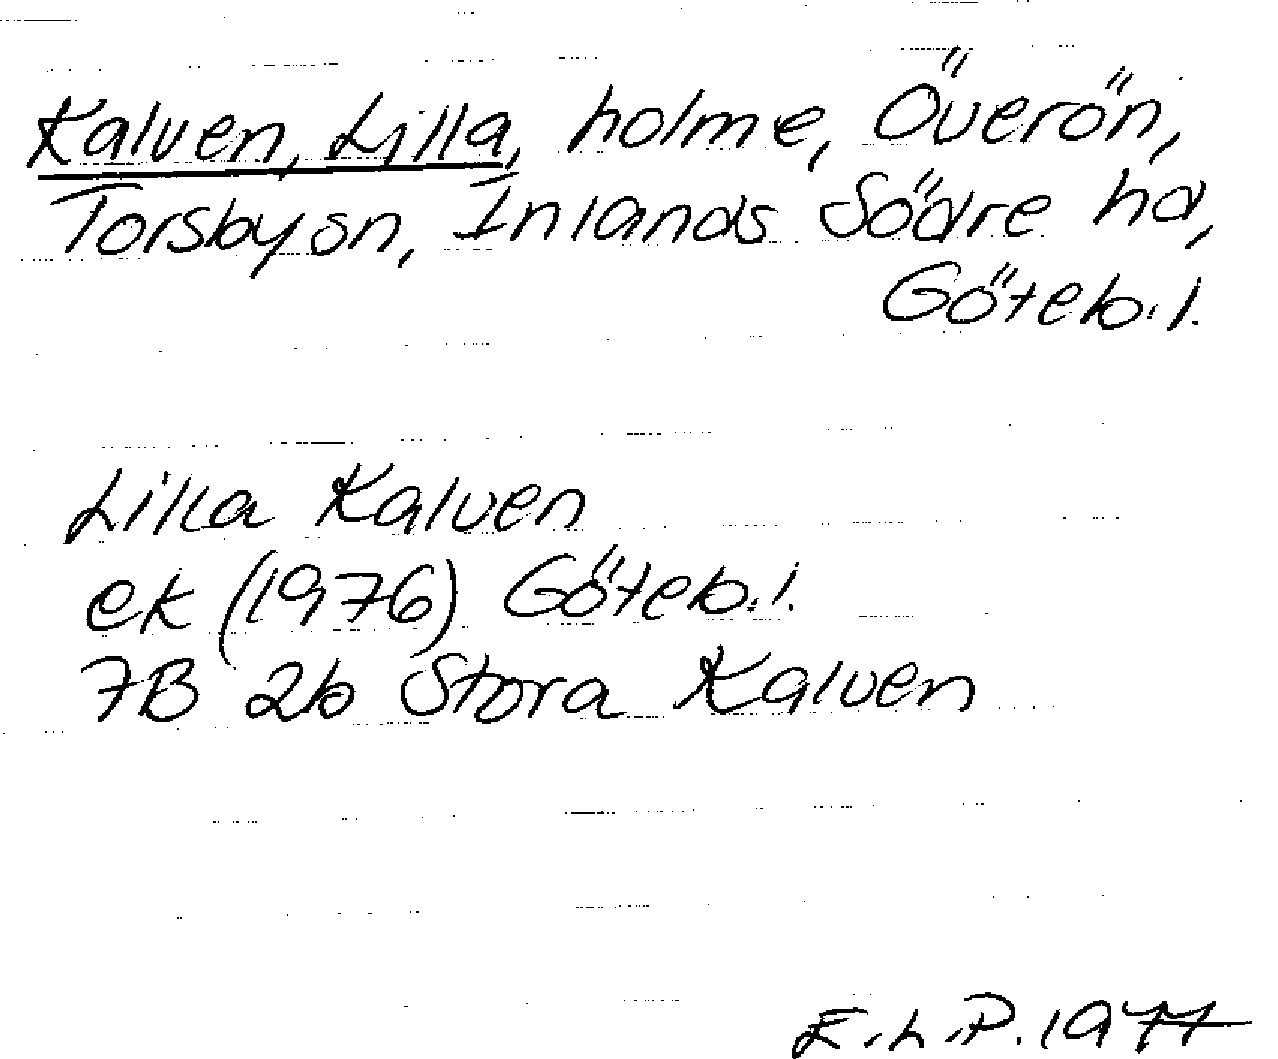 Kalven, Lilla, holme, Överön,
Torsby sn, Inlands Södre hd,
Göteb. l.
Lilla Kalven
ek (1976) Göteb. l.
7B 2b Stora Kalven
E.L.P. 1977